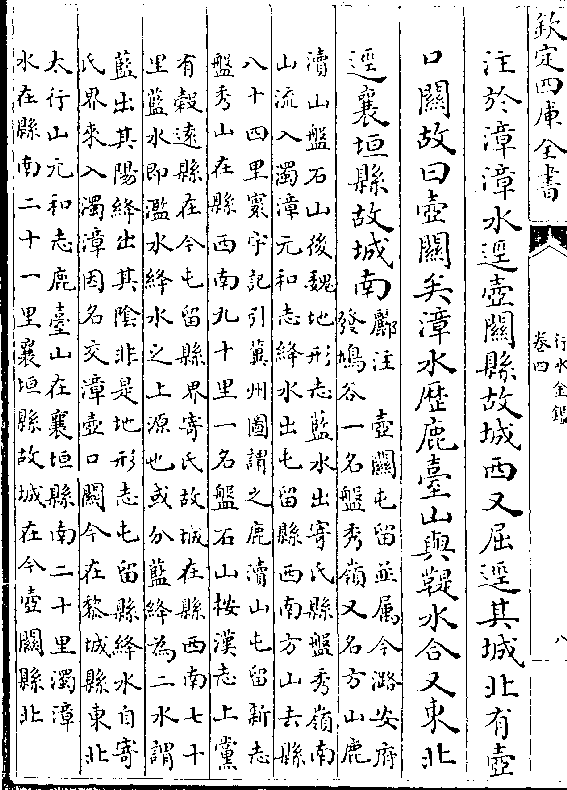 欽定四庫全書
行水金鑑
卷四
八
注於漳漳水逕壺關縣故城西又屈逕其城北有壺
口關故曰壺關矣漳水歴鹿臺山與鞮水合又東北
逕襄垣縣故城南
酈注壺關屯留並属今潞安府
發鳩谷一名盤秀嶺又名方山鹿
瀆山盤石山後魏地形志藍水出寄氏縣盤秀嶺南
山流入濁漳元和志絳水出屯留縣西南方山去縣
八十四里寰宇記引冀州圖謂之鹿瀆山屯留新志
盤秀山在縣西南九十里一名盤石山桉漢志上黨
有榖逺縣在今屯留縣界寄氏故城在縣西南七十
里藍水即濫水絳水之上源也或分藍絳為二水謂
藍出其陽絳出其陰非是地形志屯留縣絳水自寄
氏界來入濁漳因名交漳壺口關今在黎城縣東北
太行山元和志鹿臺山在襄垣縣南二十里濁漳
水在縣南二十一里襄垣縣故城在今壺關縣北